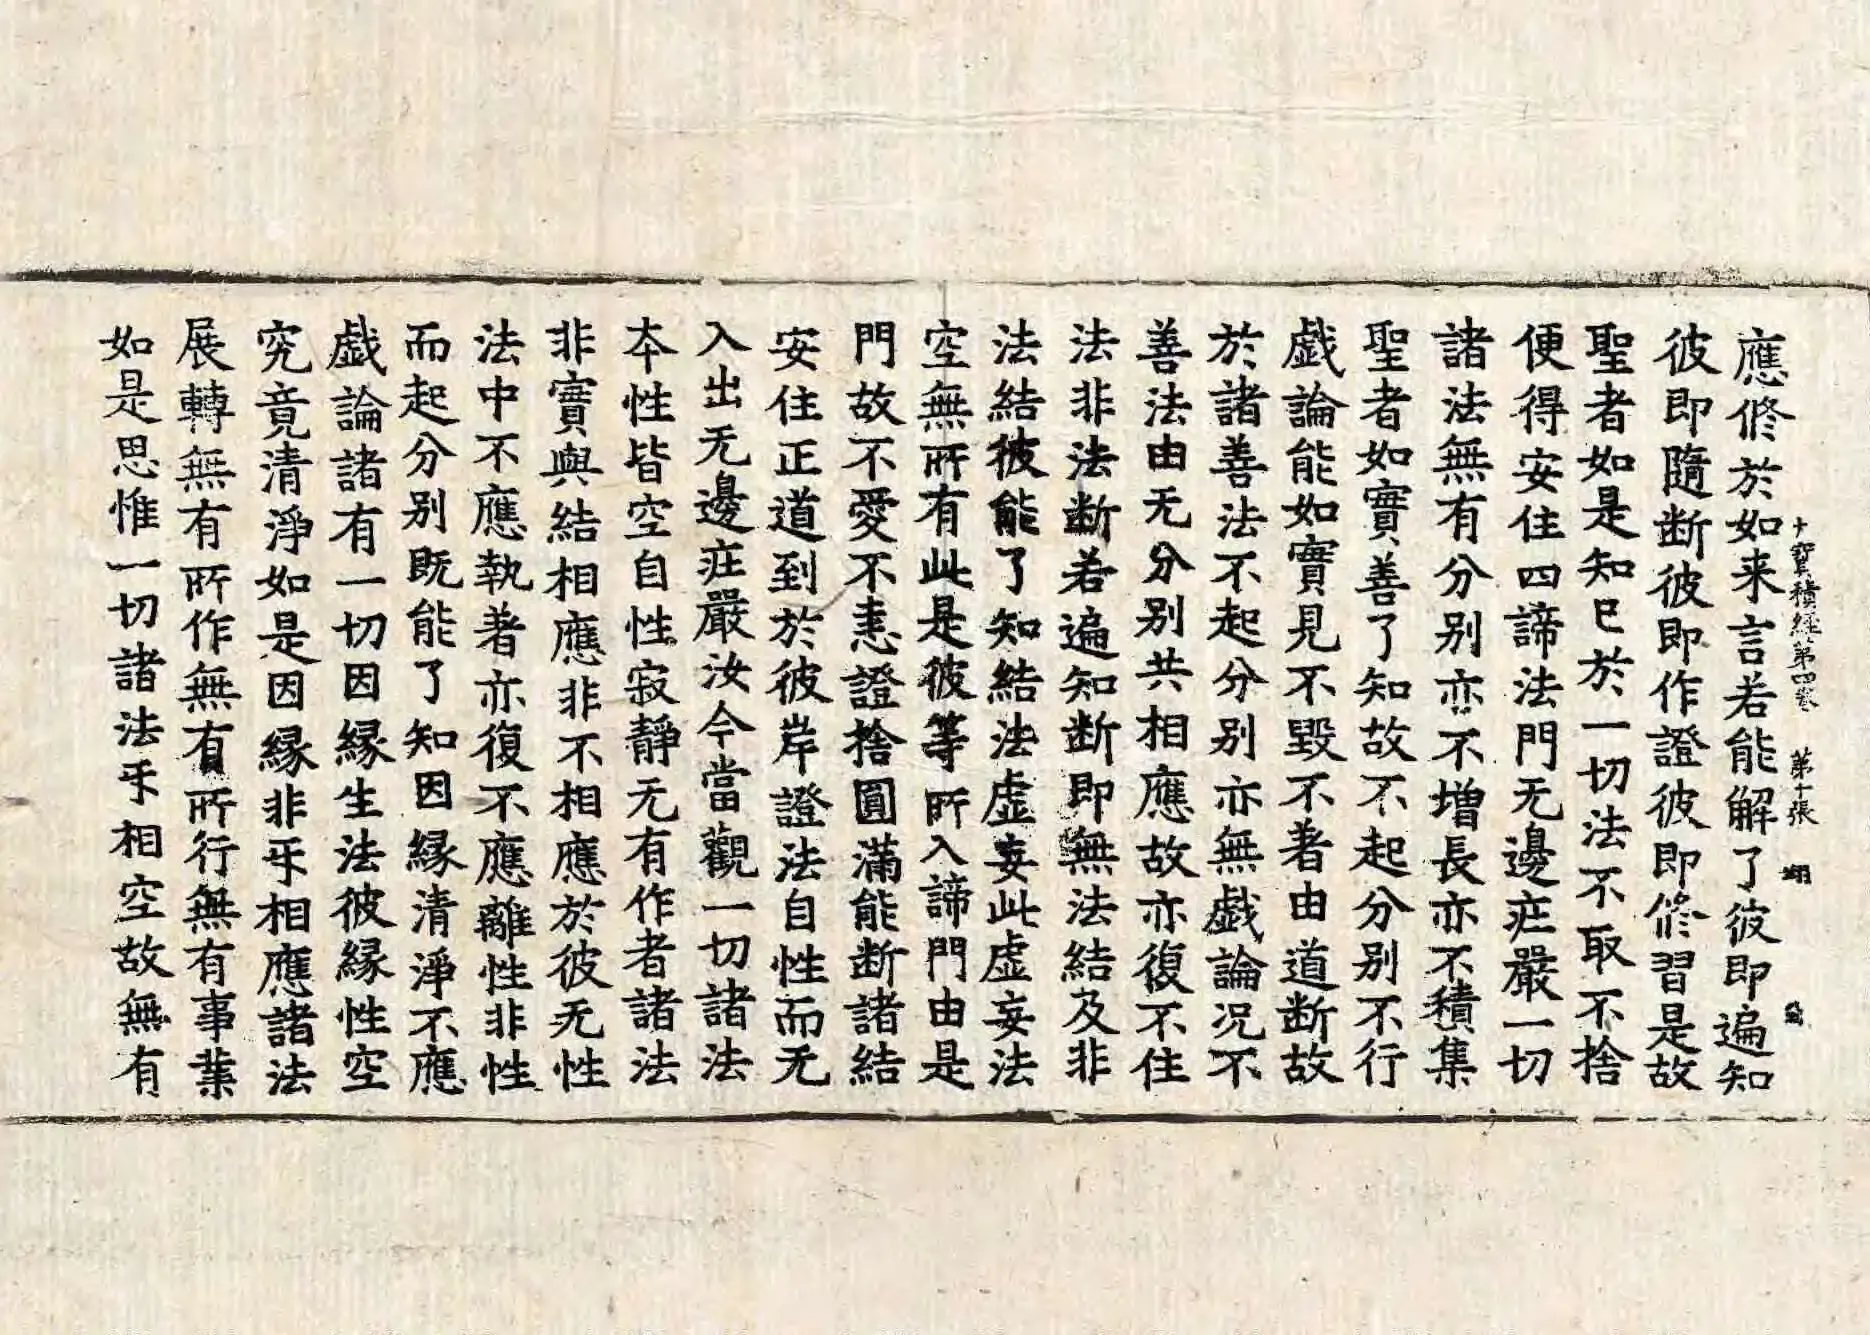 應修於如来言若能解了彼即遍知
彼即隨断彼即作證彼即修習是故
聖者如是知已於一切法不取不捨
便得安住四諦法門无邊庄嚴一切
諸法無有分別亦不增長亦不積集
聖者如實善了知故不起分別不行
戲論能如實見不毀不著由道断故
於諸善法不起分別亦無戲論況不
善法由无分別共相應故亦復不住
法非法断若遍知断即無法結及非
法結彼能了知結法虛妄此虛妄法
空無所有此是彼等所入諦門由是
門故不愛不恚證捨圓滿能断諸結
安住正道到於彼岸證法自性而无
入出无邊庄嚴汝今當觀一切諸法
本性皆空自性寂靜无有作者諸法
非實與結相應非不相應於彼无性
法中不應執著亦復不應離性非性
而起分別既能了知因緣清淨不應
戲論諸有一切因緣生法彼緣性空
究竟清淨如是因緣非乎相應諸法
展轉無有所作無有所行無有事業
如是思惟一切諸法乎相空故無有
寶積經第四卷 第十張 翊